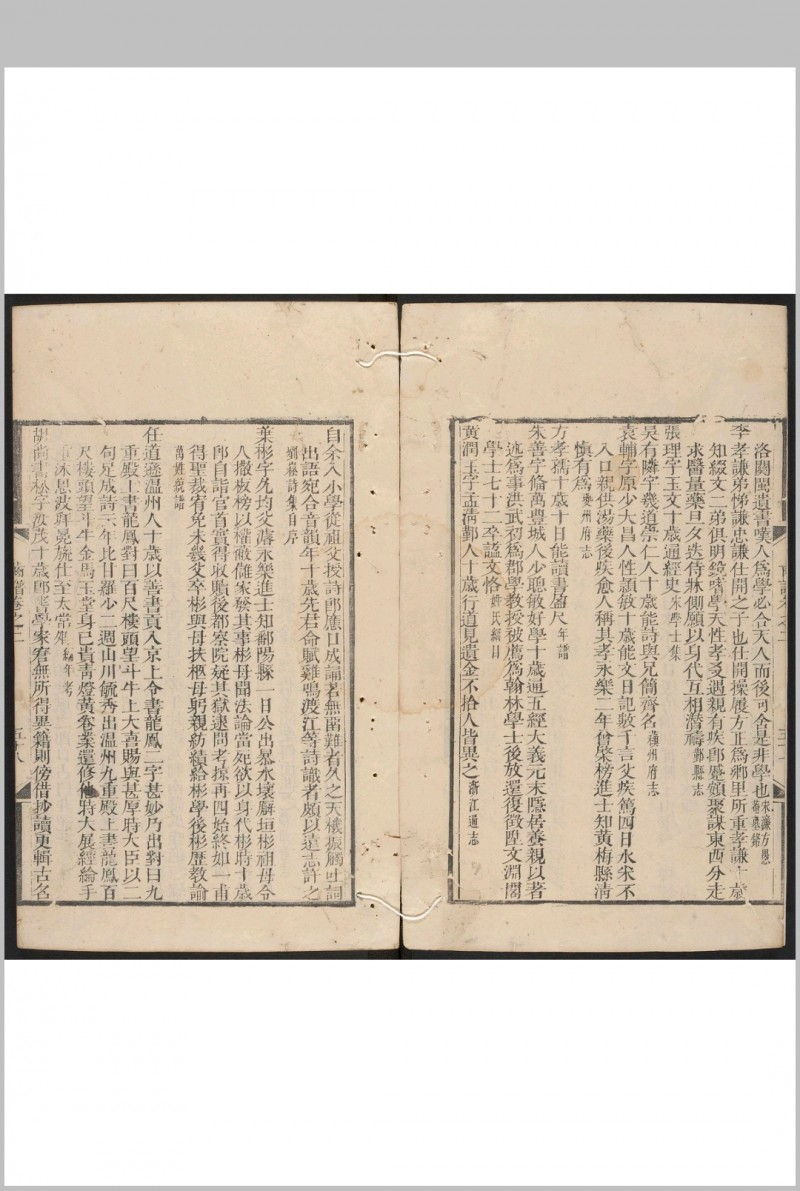 洛閩遺書嘆人為學必合天人而後可舍是非學也宋濂方愚
李孝謙弟悌謙忠謙仕開之子也仕開操履方正為鄉里所重孝謙十歲
知綴文二弟俱明敏嗜學天性孝友遇親有疾即蹙額聚謀東西分走
求醫量藥旦夕迭侍牀側願以身代互相潛禱鄞縣志
張理字玉文十歲通經史宋學士集
吳有隣字羲道崇仁人十歲能詩與兄簡齊名蘇州府志
袁輔字原少大昌人性穎敏十歲能文日記數千言父疾篤四日水米不
入口親供湯藥後疾愈人稱其孝永樂二年曾棨榜進士知黃梅縣清
慎有為夔州府志
方孝孺十歲十日能讀書盈尺年譜
朱善字備萬豐城人少聰敏好學十歲通五經大義元末隱居養親以著
述為事洪武初為郡學教授被薦為翰林學士後放還復徵陞文淵閣
學士七十二卒謚文恪姓氏綱目
黃潤玉字孟清鄞人十歲行道見遺金不拾人皆異之浙江通志
自余入小學從祖父授詩即應口成誦若無齒難者久之天機振觸吐詞
出語宛合音韻年十歲先君命賦雞鳴渡江等詩識者頗以遠志許之
劉嵩詩集自序
葉彬字允均父濬永樂進士知鄱陽縣一日公出暴水壞廨垣彬祖母令
人撒板榜以權蔽讎家發其事彬母聞法論當死欲以身代彬時十歲
即自詣官首實得收贖後都察院疑其獄逮問考掠再四始終如一甫
得聖裁宥免未幾父卒彬與母扶柩母躬親紡績給彬學後彬歷教諭
萬姓統譜
任道遜溫州人十歲以善書貢入京上令書龍鳳二字甚妙乃出對曰九
重殿上書龍鳳對曰百尺樓頭望斗牛上大喜賜與甚厚時大臣以二
句足成詩云年比甘羅少二週山川毓秀出溫州九重殿上書龍鳳百
尺樓頭望斗牛金馬玉堂身已貴青燈黃卷業還修他時大展經綸手
沬恩波拜冕旒仕至太常卿編年考
胡尚書松字汝茂十歲即耽學家窘無所得異籍則傍借抄讀更輯古名
尚譜卷之二
五十八